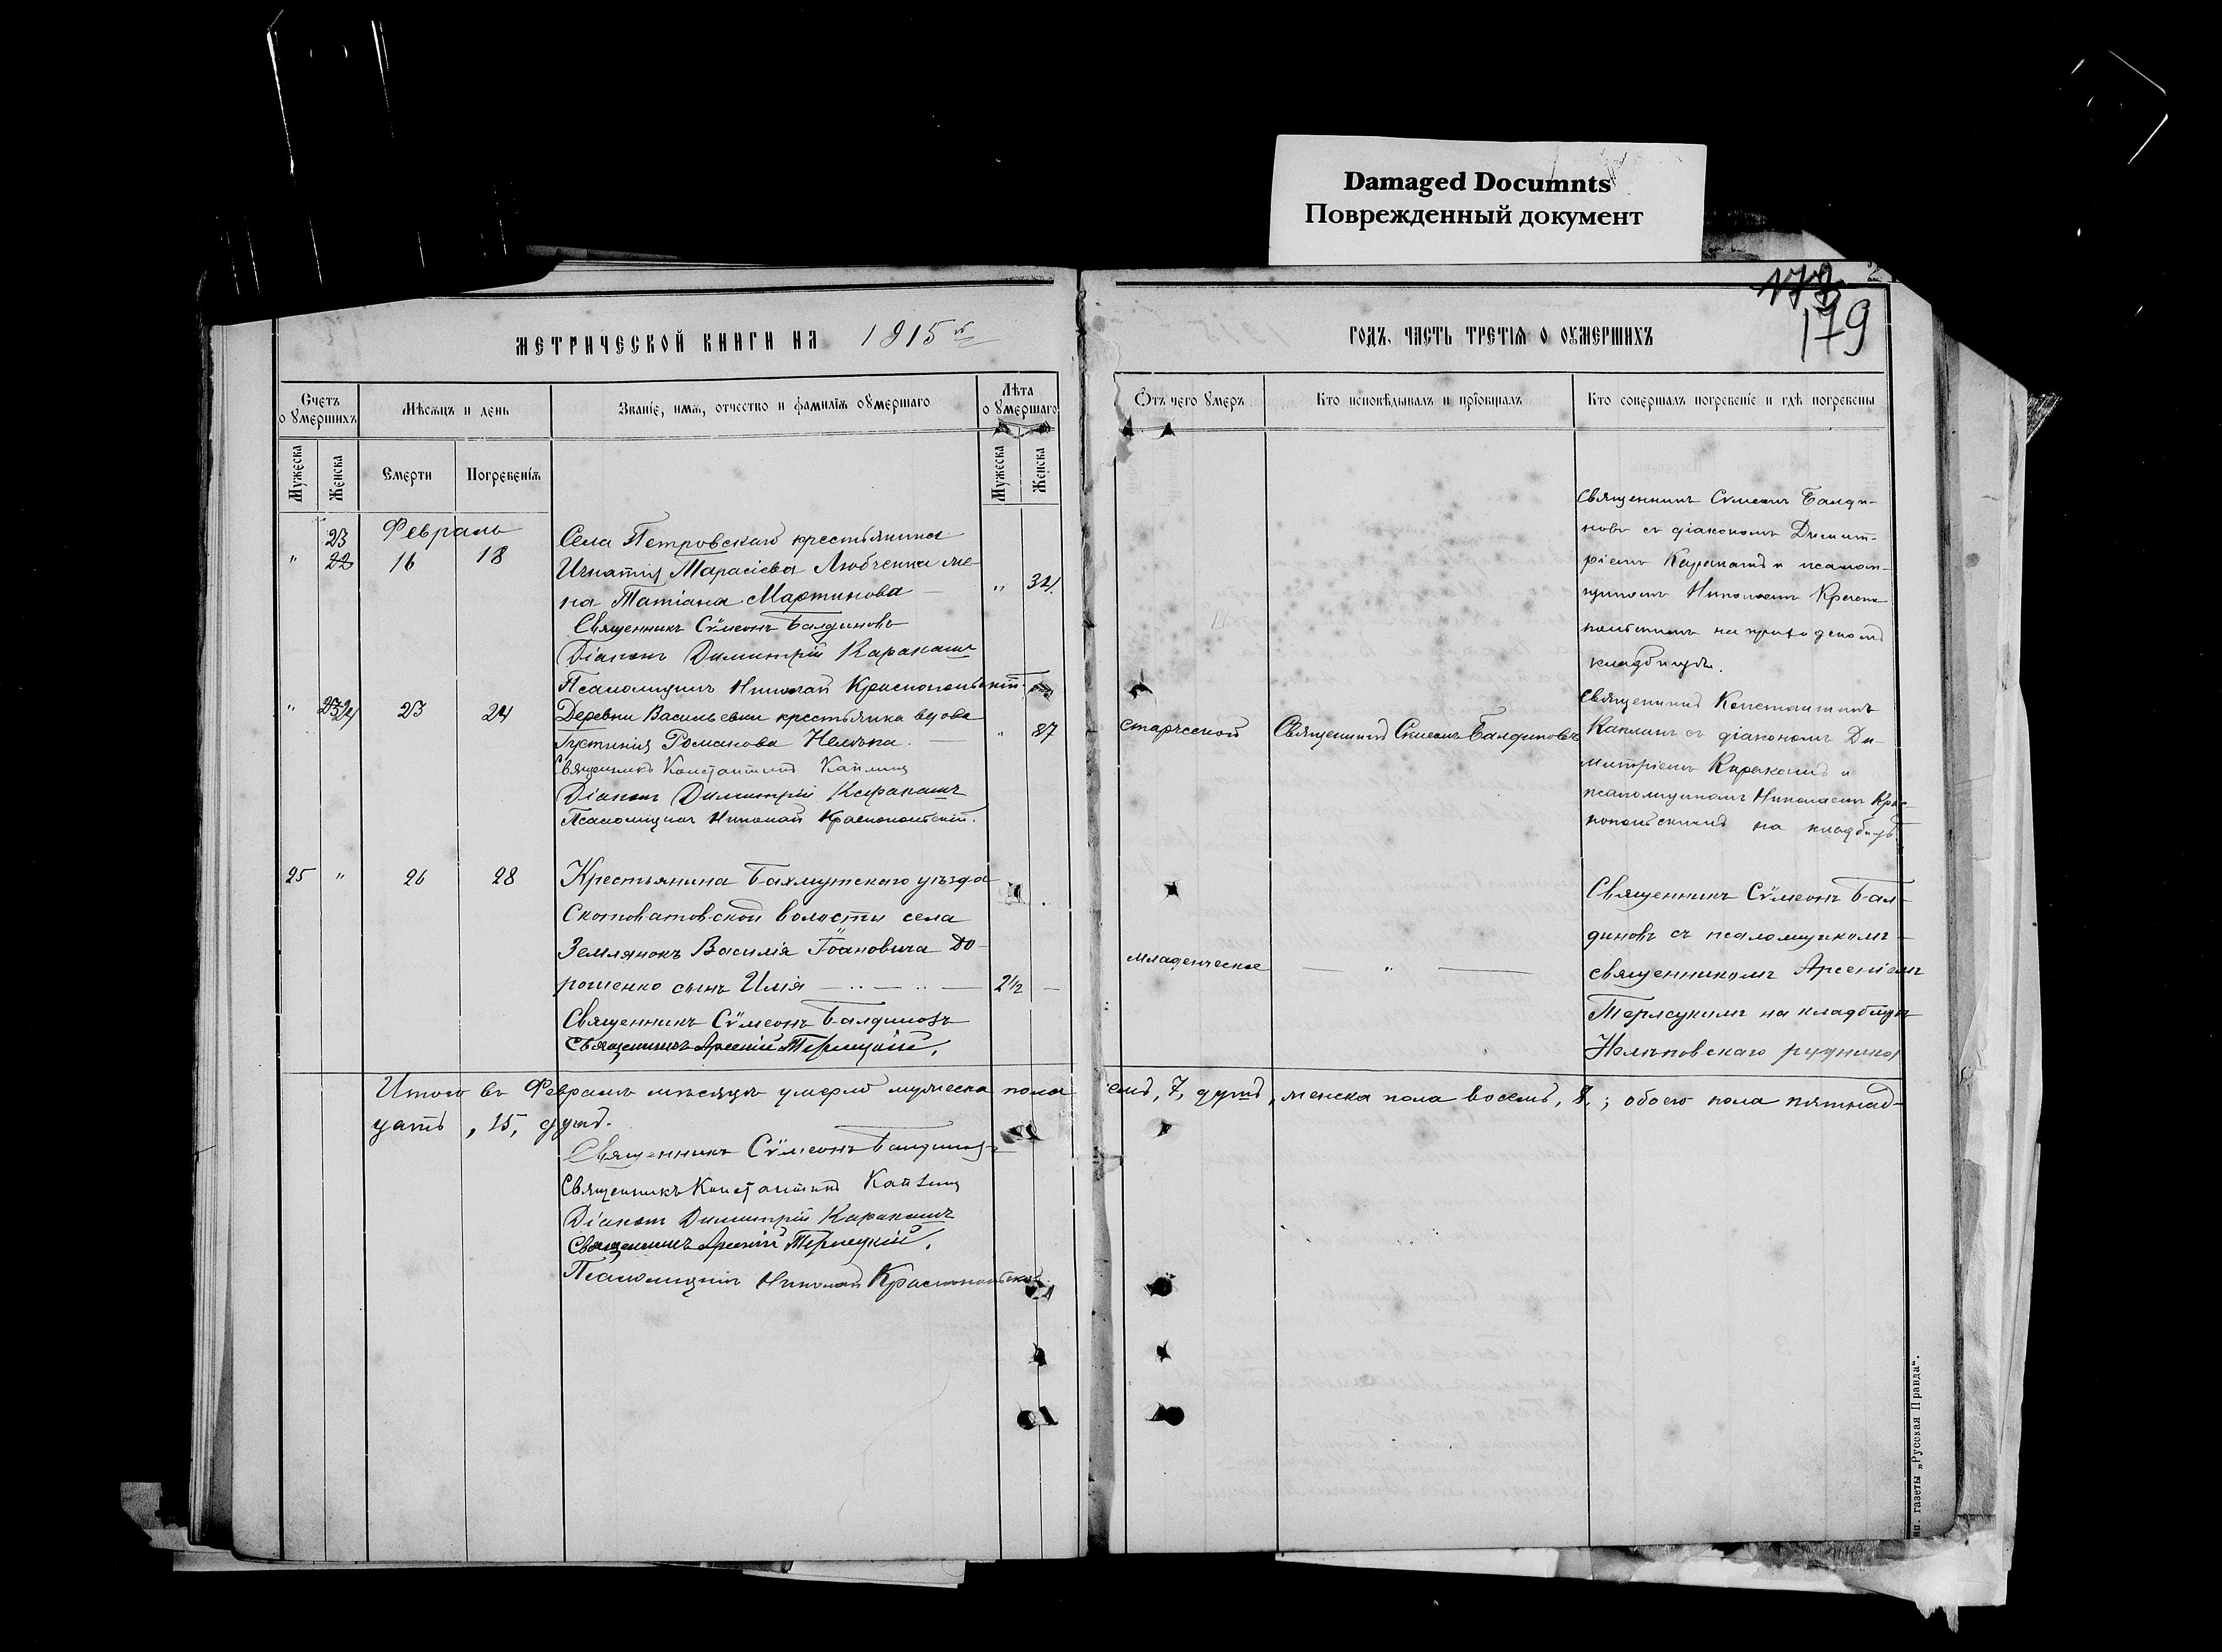 Damaged Documnts
Поврежденный документ
179
МЕТРИЧЕСКОЙ КНИГИ НА 1915й
ГОДЪ. ЧАСТЬ ТРЕТІѦ О ОУМЕРШИХЪ
Счетъ о умершихъ
Мѣсяцъ и день
Званіе, имя, отчество и фамилія оумершаго
Лѣта о умершаго
Отъ чего умеръ
Кто исповѣдывалъ и пріобщалъ
Кто совершалъ погребеніе и гдѣ погребены
Мужеска
Женска
Смерти
Погребенія
Мужеска
Женска
Февраль
23
" 22 16 18
Села Петровскаго крестьянина
Игнатія Тарасіева Любченка же-
на Татіана Мартинова " 34.
Священникъ Сѵмеонъ Балдиновъ
Діаконъ Димитрій Каракашъ
Псаломщикъ Николай Краснопольскій.
Священникъ Сѵмеонъ Балди-
новъ съ діакономъ Димит-
ріемъ Каракашъ и псалом-
щикомъ Николаемъ Красно-
польскимъ на приходскомъ
кладбищѣ.
" 23 24 23 24
Деревни Васильевки крестьянка вдова
Іустинія Романова Нелѣпа. " 87
Священникъ Константинъ Каплинъ
Діаконъ Димитрій Каракашъ
Псаломщикъ Николай Краснопольскій.
старческой
Священникъ Сѵмеонъ Балдиновъ
Священникъ Константинъ
Каплинъ съ діакономъ Ди-
митріемъ Каракашъ и
псаломщикомъ Николаемъ Крас-
нопольскимъ на кладбищѣ
25 " 26 28
Крестьянина Бахмутскаго уѣзда
Скотоватовской волости села
Землянокъ Василія Іоановича До-
рошенко сынъ Илія 2½ —
Священникъ Сѵмеонъ Балдиновъ
Священникъ Арсеній Терлецкій.
младенческое
— " —
Священникъ Сѵмеонъ Бал-
диновъ съ псаломщикомъ
священникомъ Арсеніемъ
Терлецкимъ на кладбищѣ
Нелѣповскаго рудника
Итого въ Февралѣ мѣсяцѣ умерло мужеска пола семь, 7, душъ, женска пола восемь, 8,; обоего пола пятнад-
цать, 15, душъ.
Священникъ Сѵмеонъ Балдиновъ
Священникъ Константинъ Каплинъ
Діаконъ Димитрій Каракашъ
Священникъ Арсеній Терлецкій.
Псаломщикъ Николай Краснопольскій
газеты „Русская Правда“.